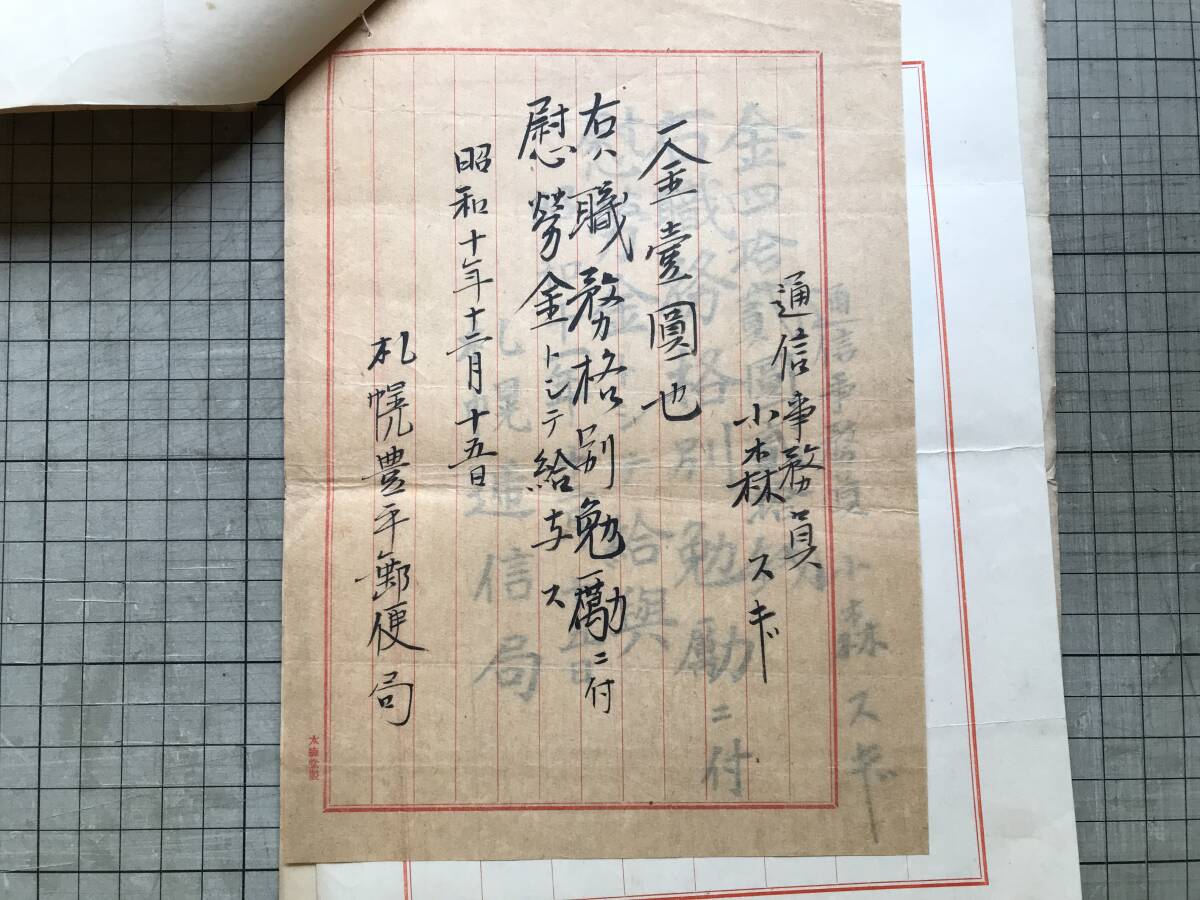 通信事務員
小森スキ
一金壹圓也
右ハ職務格別勉励ニ付
慰勞金トシテ給与ス
昭和十年十二月十五日
札幌豊平郵便局